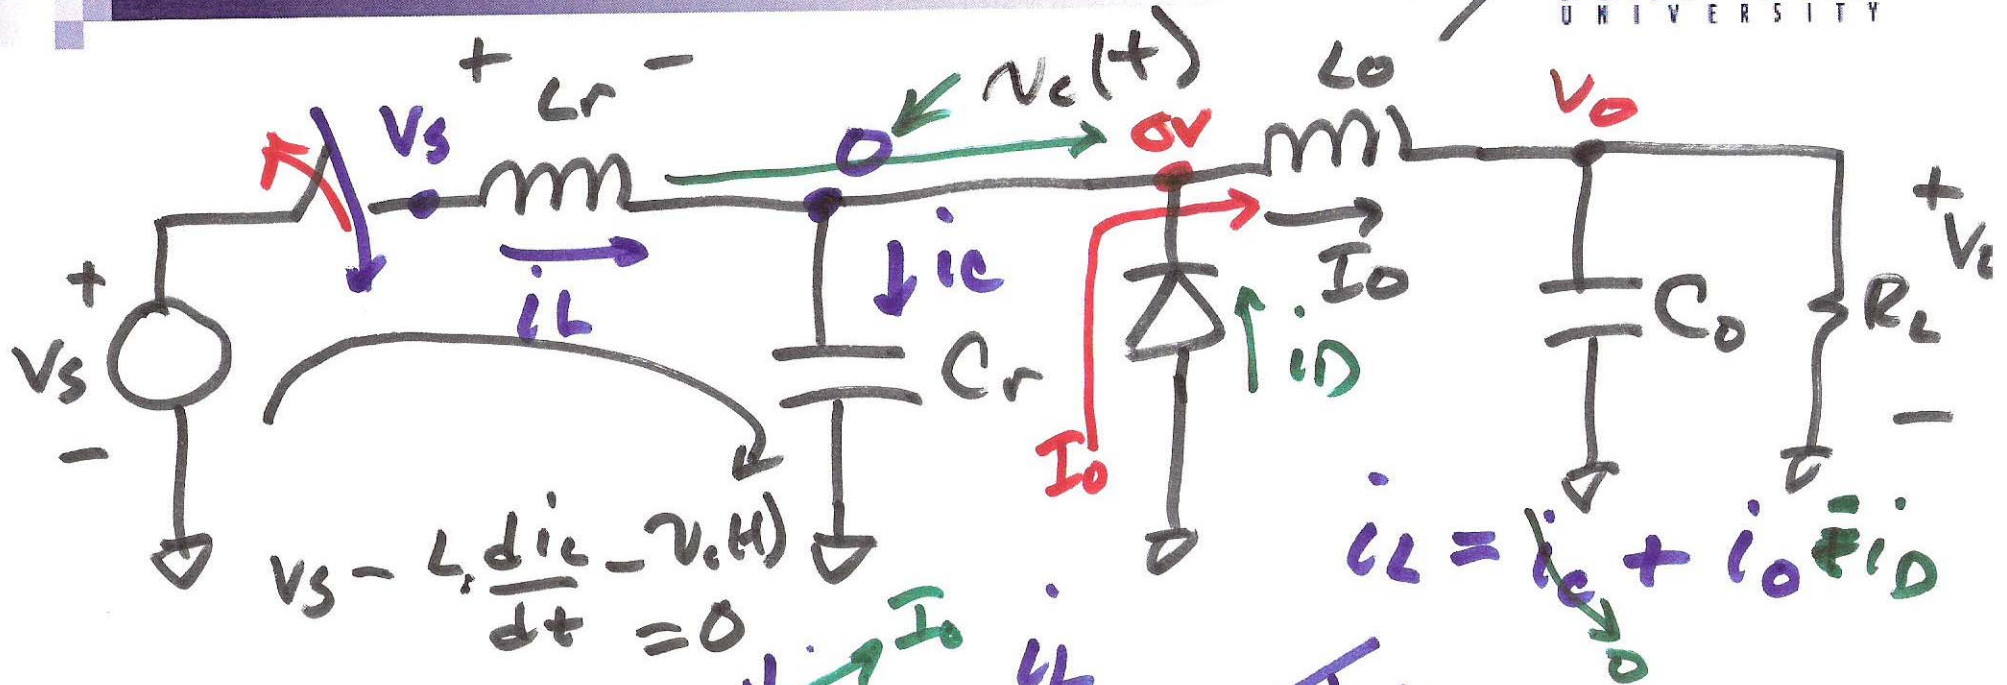 UNIVERSITY
+ Lr -
vc(t)
Lo
Vs
0
0V
Vo
+
VL
-
iL
ic
Io
+
Vs
-
Cr
iD
Co
RL
Io
Vs - Lr diL/dt - vc(t) = 0
iL = ic + io - iD
0
Io
iL